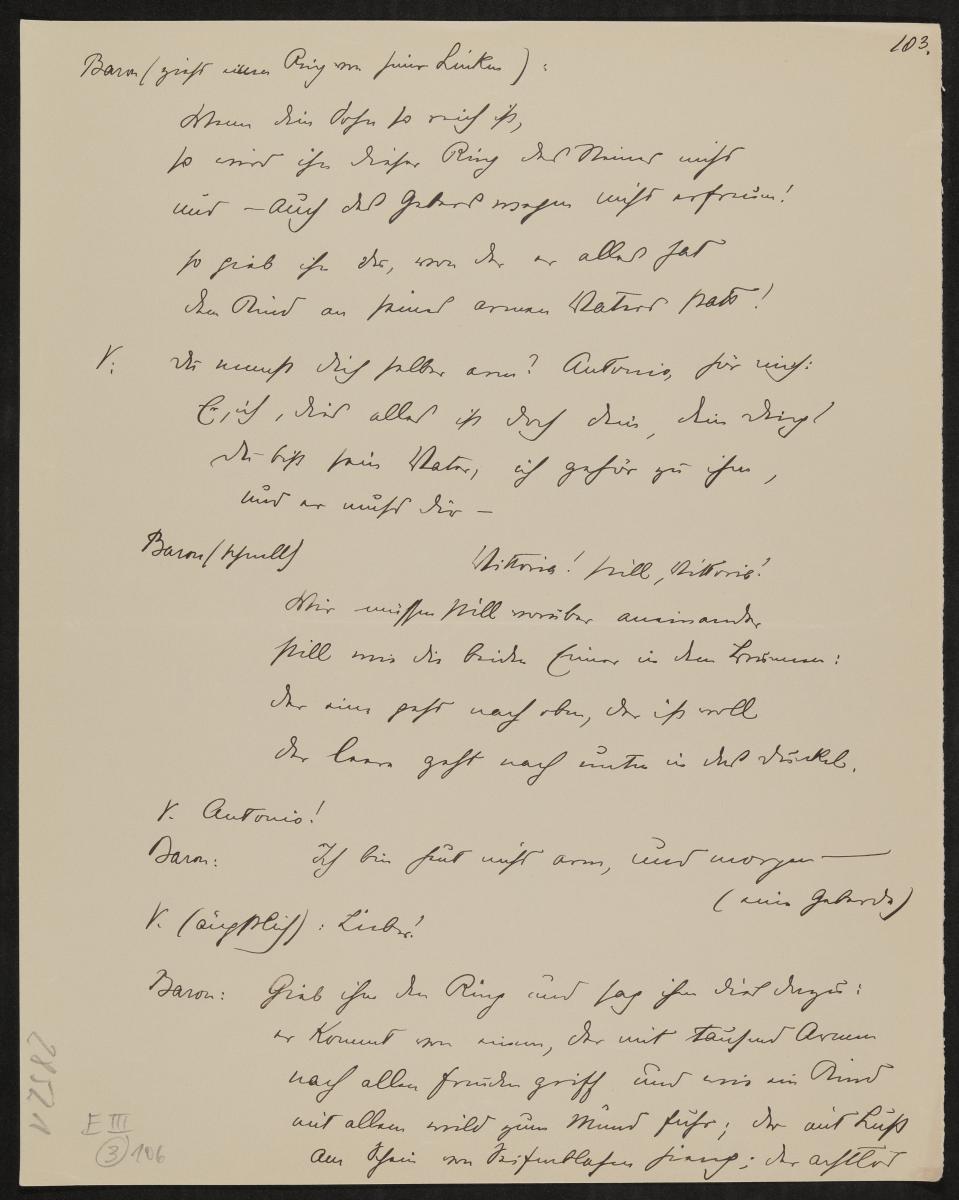 103.
Baron (zieht einen Ring von seiner Linken):
Wenn dein Sohn so reich ist,
so wird ihn dieser Ring des Steines nicht
und – auch des Gebers wegen nicht erfreuen!
so gieb ihn du, von der er alles hat
dem Kind an seines armen Vaters statt!
V: Du nennst dich selber arm? Antonio, hör mich:
Er, ich, dies alles ist doch dein, dein Ding!
Du bist sein Vater, ich gehör zu ihm,
und er dir –
Baron (schnell) Vittoria! still, Vittoria!
Wir müssen still vorüber aneinander
still wie die beiden Eimer in dem Brunnen:
der eine geht nach oben, der ist voll
der leere geht nach unten in das Dunkel.
V. Antonio!
Baron: Ich bin heut nicht arm, und morgen —
(eine Geberde)
V. (ängstlich): Lieber!
Baron: Gieb ihm den Ring und sag ihm dies dazu:
er kommt von einem, der mit tausend Armen
nach allen Freuden griff und wie ein Kind
mit allem wild zum Mund fuhr; der mit Lust
am Schein von Seifenblasen hieng; der achtlos
28521
E III
(3) 106